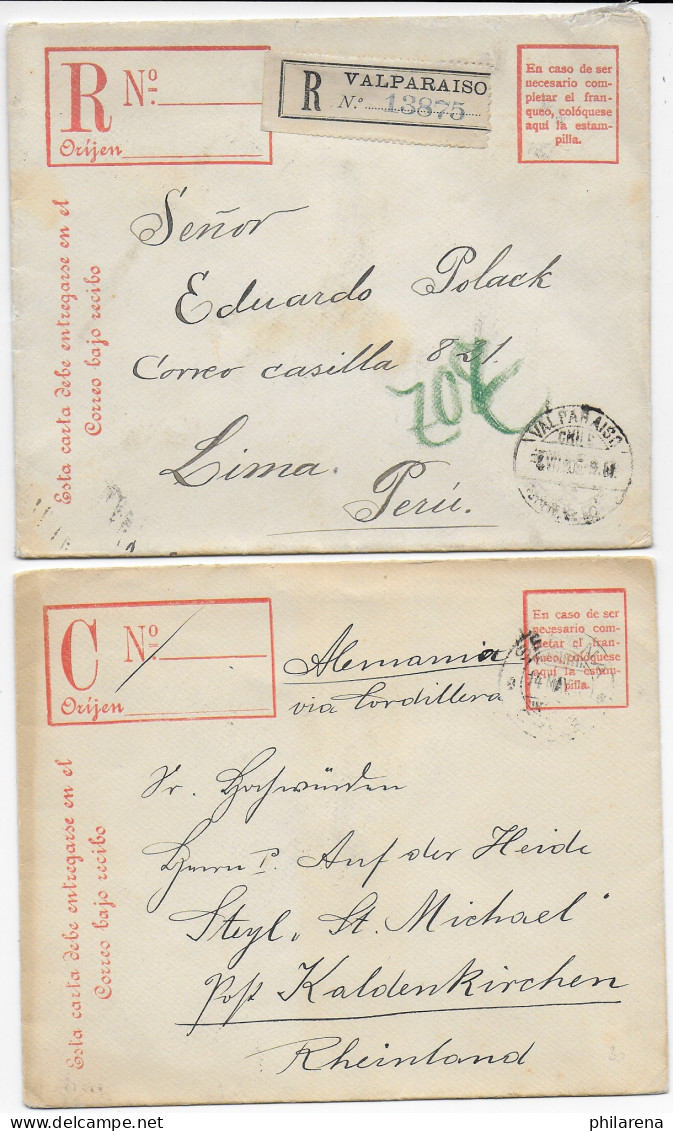 R Nº
Oríjen
R VALPARAISO
Nº 13875
En caso de ser
necesario com-
pletar el fran-
queo, colóquese
aquí la estam-
pilla.
Esta carta debe entregarse en el
Correo bajo recibo
Señor
Eduardo Polack
Correo casilla 821.
Lima.
Perú.
VALPARAISO
CHILE
C Nº
Oríjen
En caso de ser
necesario com-
pletar el fran-
queo, colóquese
aquí la estam-
pilla.
Alemania
via Cordillera
Esta carta debe entregarse en el
Correo bajo recibo
Sr. Hochwürden
Herrn P. Auf der Heide
Steyl „St. Michael"
Post Kaldenkirchen
Rheinland
philarena